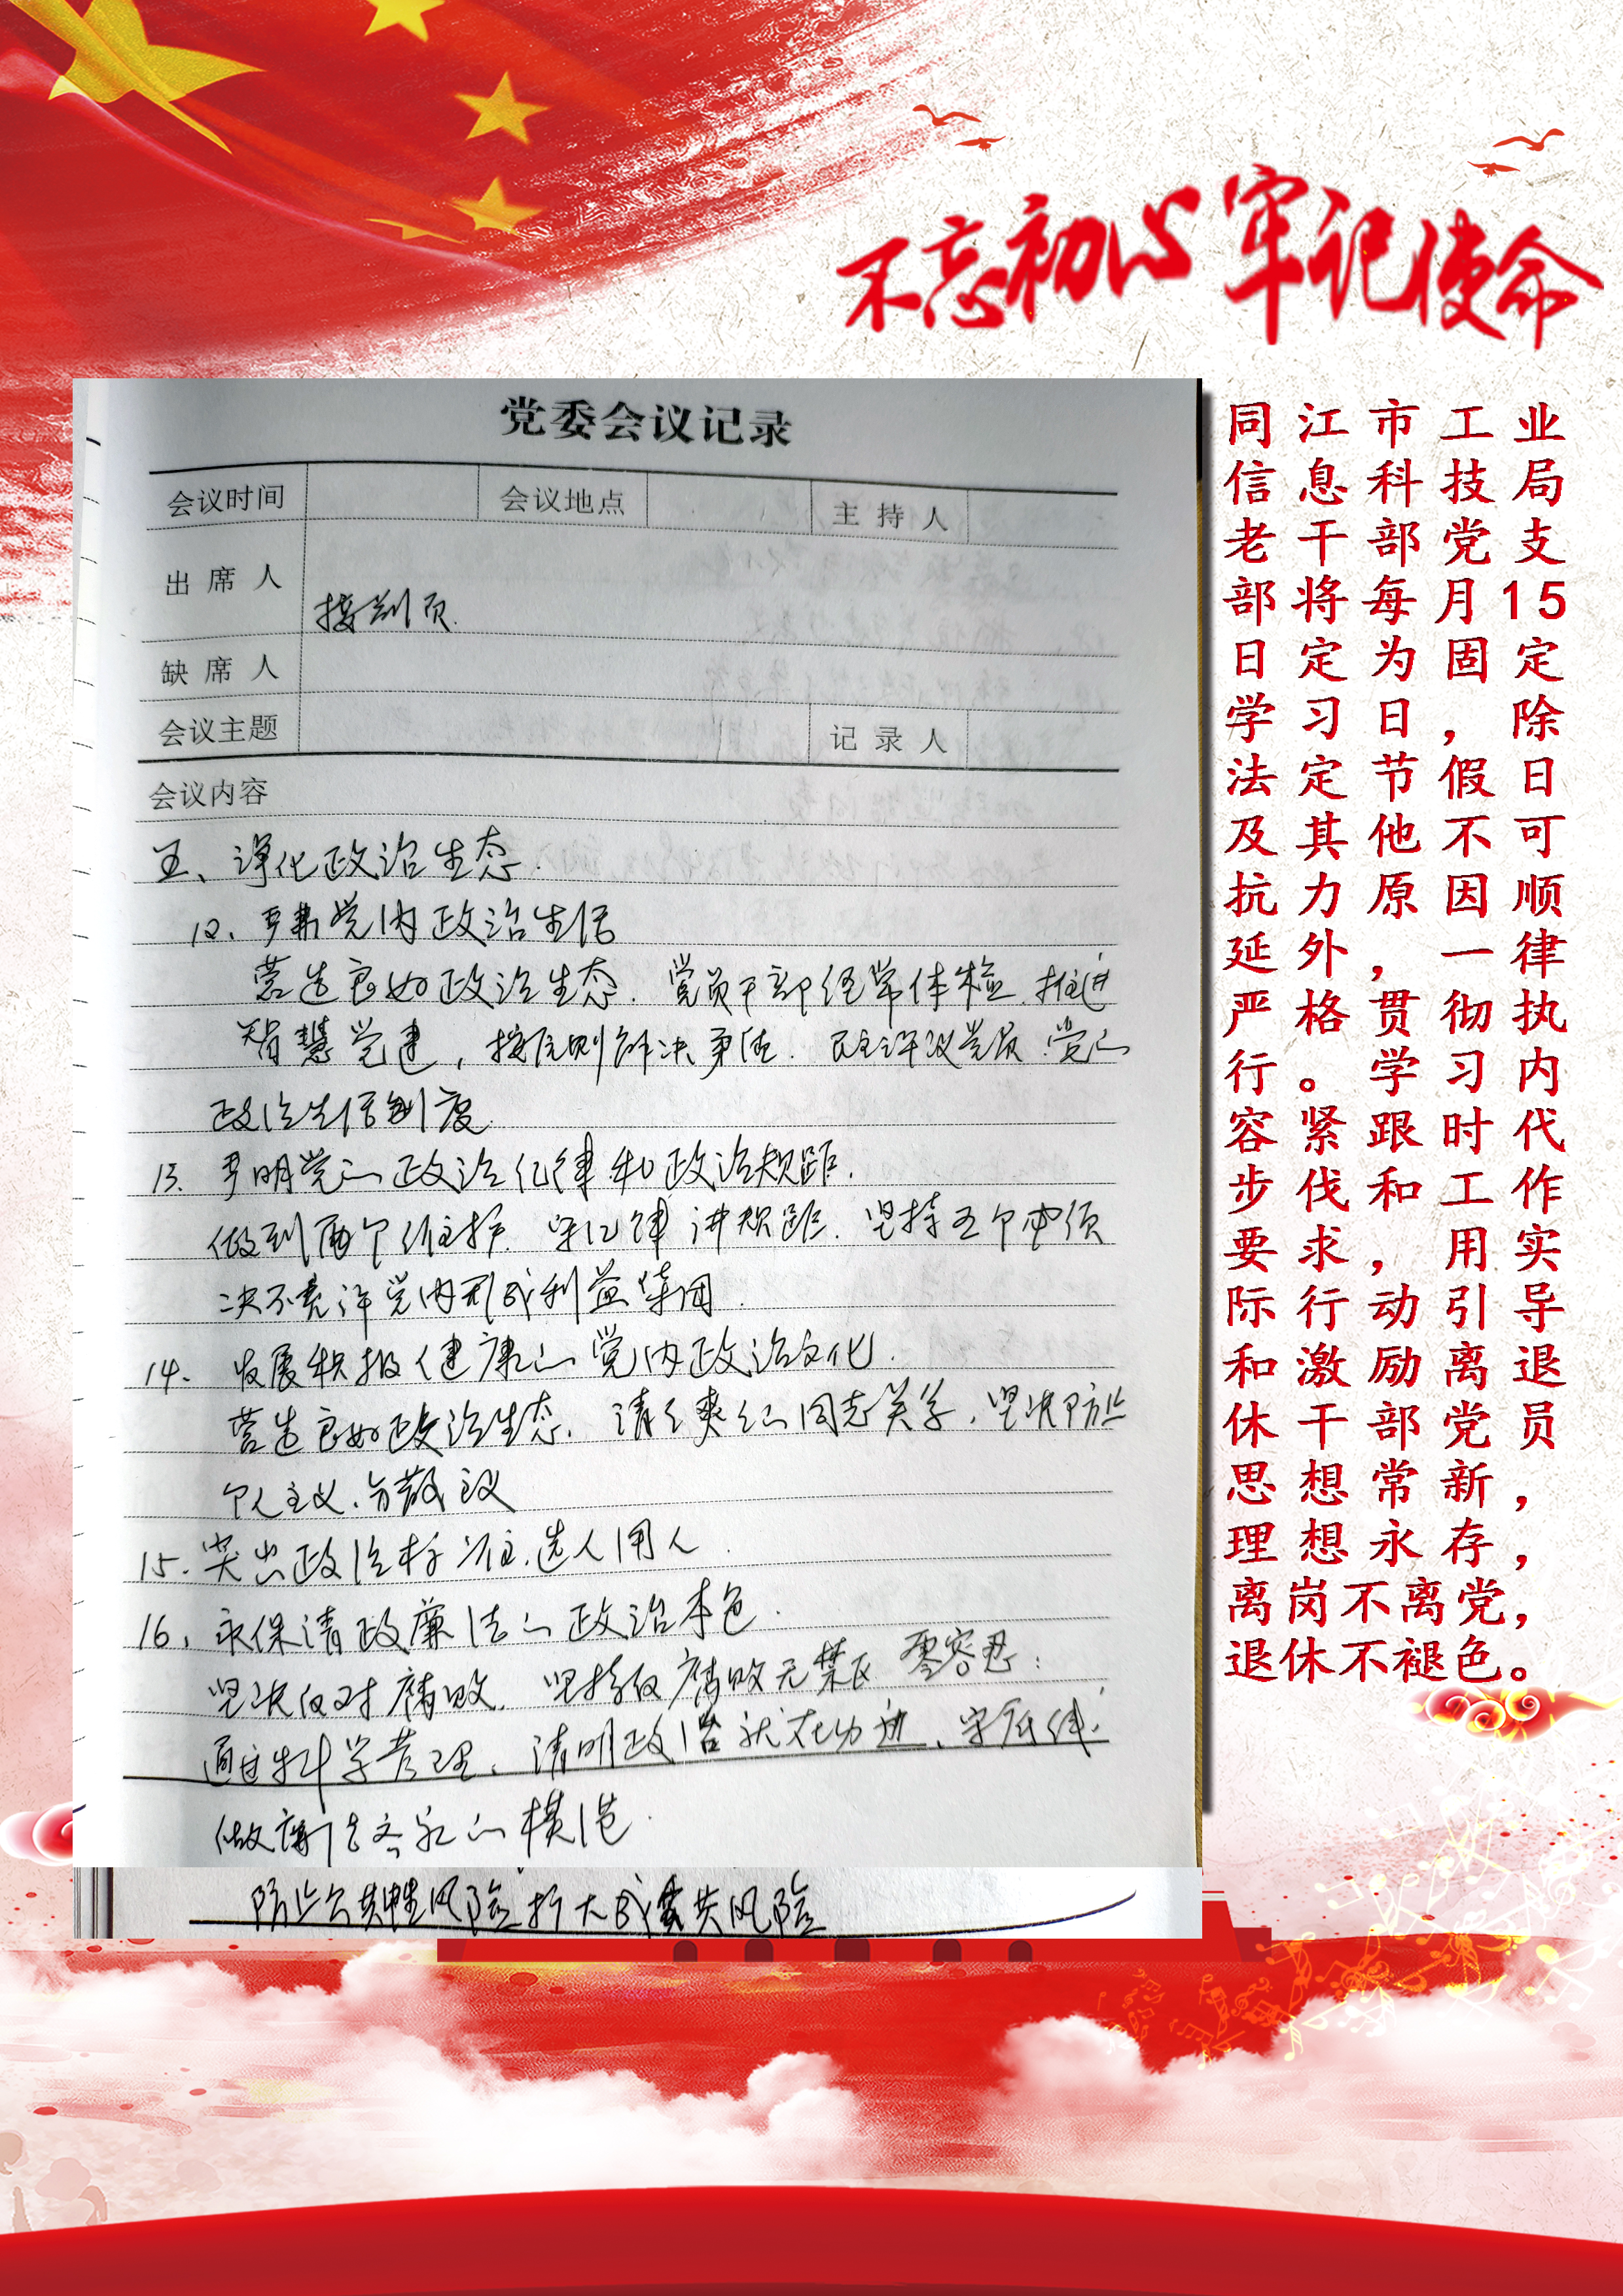 不忘初心牢记使命
党委会议记录
会议时间 会议地点 主持人
出席人
接前页
缺席人
会议主题 记录人
会议内容
五、净化政治生态.
12、严肃党内政治生活
营造良好政治生态. 党员干部经常体检. 推进
智慧党建, 按原则解决事情. 民主评议党员. 党的
政治生活制度.
13. 严明党的政治纪律和政治规距.
做到两个维护. 守纪律 讲规距. 坚持五个必须
决不允许党内形成利益集团.
14. 发展积极健康的党内政治文化.
营造良好政治生态. 清清爽爽的同志关系. 坚决防止
个人主义、分散主义
15. 突出政治标准选人用人.
16、永保清政廉洁的政治本色.
坚决反对腐败. 坚持反腐败无禁区 零容忍:
通过科学管理. 清明政治 就在 . 守底线.
做廉洁齐家的模范.
防止 风险扩大成 风险
同江市工业
信息科技局
老干部党支
部将每月15
日定为固定
学习日，除
法定节假日
及其他不可
抗力原因顺
延外，一律
严格贯彻执
行。学习内
容紧跟时代
步伐和工作
要求，用实
际行动引导
和激励离退
休干部党员
思想常新，
理想永存，
离岗不离党，
退休不褪色。